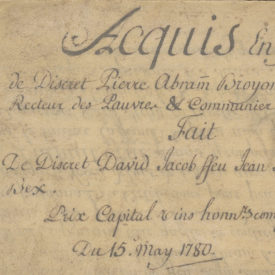 Acquis En
de Discret Pierre Abram Broyon
Recteur des Pauvres & Communier
Fait
De Discret David Jacob ffeu Jean
Bex.
Prix Capital & vins honn.
Du 15. May 1780.